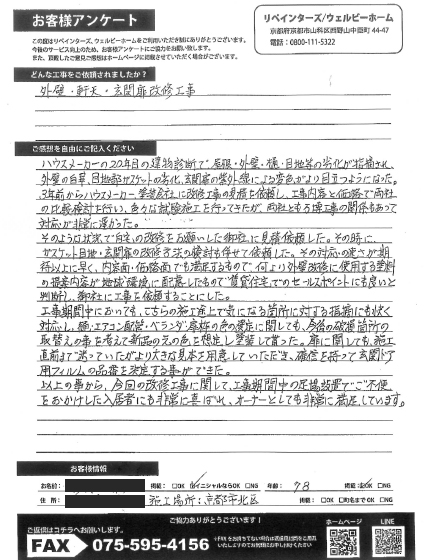 お客様アンケート
この度はリペインターズ、ウェルビーホームをご利用いただき誠にありがとうございます。
今後のサービス向上のため、お客様アンケートにご協力をお願い致します。
また、頂戴したご意見ご感想はホームページに掲載させていただく場合がございます。
リペインターズ/ウェルビーホーム
京都府京都市山科区西野山中臣町 44-47
電話：0800-111-5322
どんな工事をご依頼されましたか？
外壁・軒天・玄関扉改修工事
ご感想を自由にご記入ください
ハウスメーカーの20年目の建物診断で屋根・外壁・樋・目地等の劣化が指摘され、
外壁の白華、目地部ガスケットの劣化、玄関扉の紫外線による変色がより目立つようになった。
3年前からハウスメーカー、塗装会社に改修工事の見積を依頼し、工事内容と価格で両社
の比較検討を行い、色々な試験施工を行ってきたが、両社とも万博工事の関係もあって
対応が非常に遅かった。
そのような状況で自宅の改修をお願いした御社に見積依頼した。その時に
ガスケット目地・玄関扉の改修方法の検討も併せて依頼した。その対応の速さが期
待以上に早く、内容面・価格面でも満足するもので何より外壁改修に使用する塗料
の提案内容が地球環境に配慮したもので"賃貸住宅"でのセールスポイントにも良いと
判断し、御社に工事を依頼することにした。
工事期間中においても、こちらの施工途上で気になる箇所に対する指摘にも快く
対応し、樋・エアコン配管・ベランダ床枠の色の選定に関しても、今後の破損箇所の
取替えの事を考えて新品の元の色を想定し塗装して貰った。扉に関しても、施工
直前まで迷っていたがより大きな見本を用意していただき、確信を持って玄関ドア
用フィルムの品番を決定する事ができた。
以上の事から、今回の改修工事に関して、工事期間中の足場設置でご不便
をおかけした入居者にも非常に喜ばれ、オーナーとしても非常に満足しています。
お客様情報
お名前： 掲載：□OK ☑イニシャルならOK □NG 年齢： 78 掲載：☑OK □NG
住 所： 施工場所：京都市北区 掲載：□OK □町名までOK □NG
ご協力ありがとうございます！
ご返信はコチラへお願いします。
FAX 075-595-4156
ホームページ
LINE